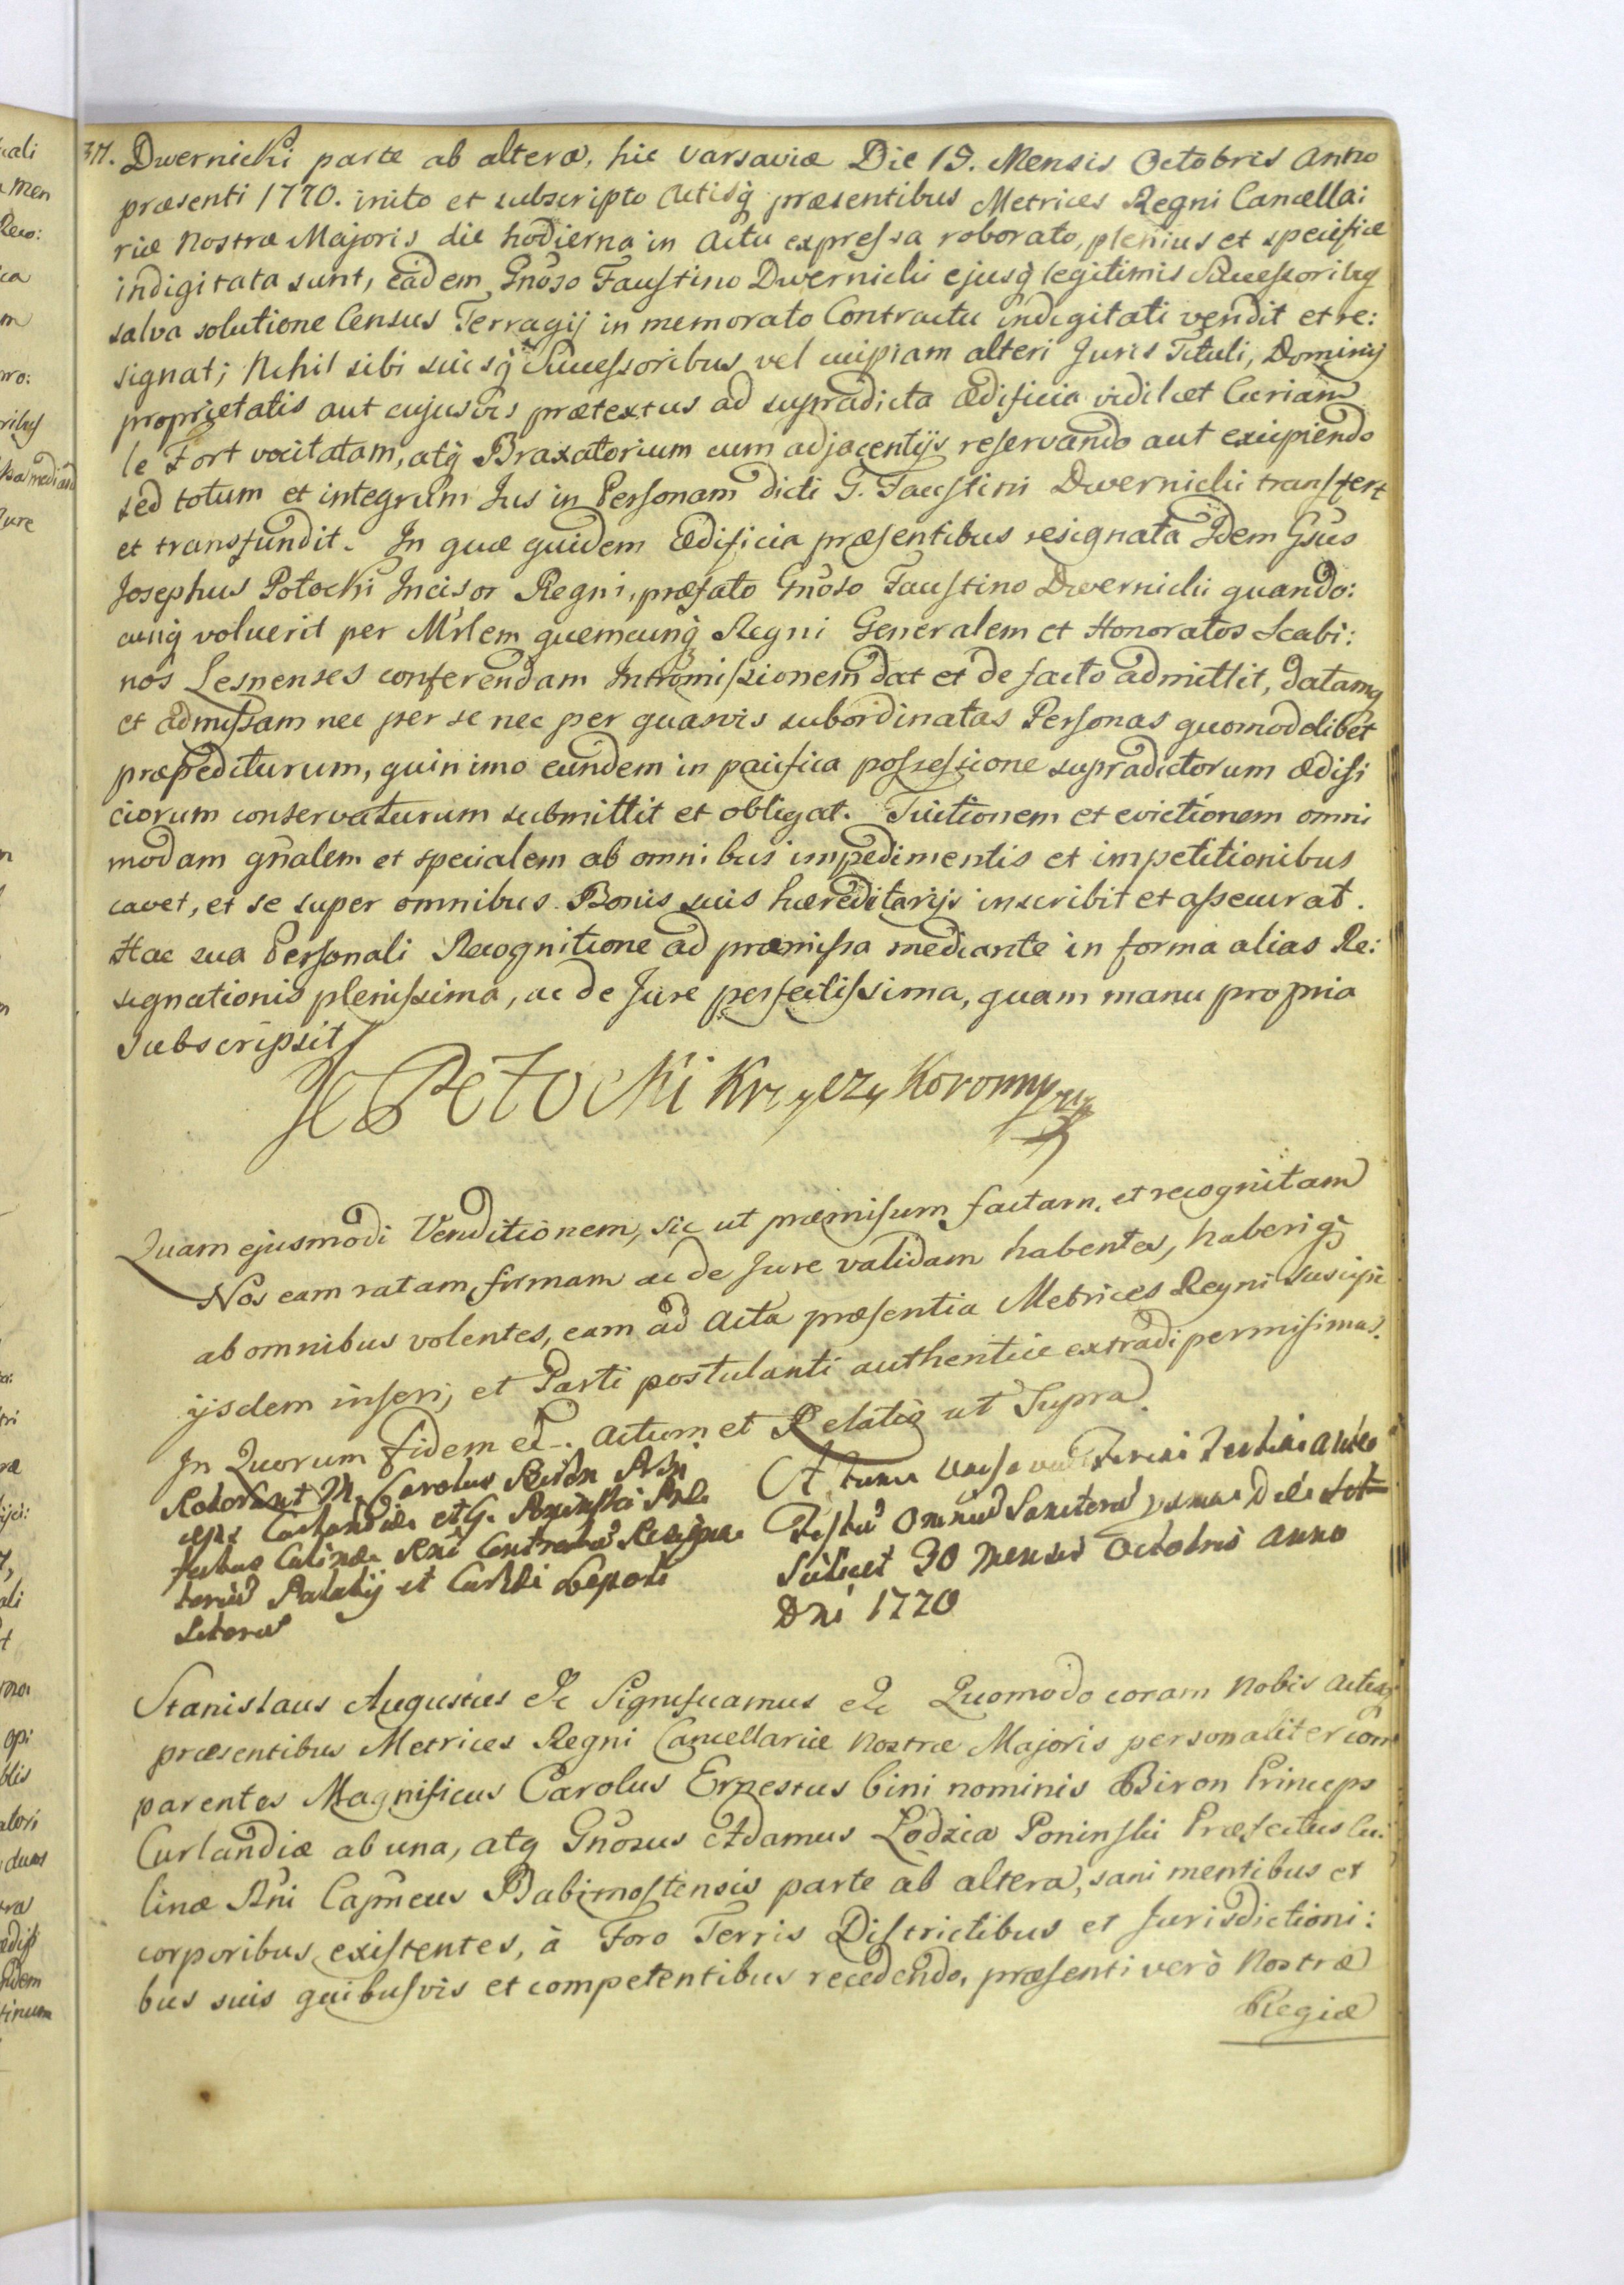 317. Dwernicki parte ab altera, hic Varsaviæ Die 19. Mensis Octobris Anno
præsenti 1770. inito et subscripto Actisq̃ præsentibus Metrices Regni Cancella:
riæ Nostræ Majoris die hodierna in Actu expressa roborato, plenius et specifice
indigitata sunt, eidem Gnoso Faustino Dwernicki ejusq̃ legitimis Successoribus
salva solutione Census Terragij in memorato Contractu indigitati vendit et re:
signat; Nihil sibi suisq̃ Successoribus vel cuipiam alteri Juris Tituli, Dominij
proprietatis aut cujusvis prætextus ad supradicta Ædificia videlicet Curiam
le Fort vocitatam, atq̃ Braxatorium cum adjacentijs reservando aut excipiendo
sed totum et integrum Jus in Personam dicti G. Faustini Dwernicki transfert
et transfundit. In quæ quidem Ædificia præsentibus resignata Idem Gsus
Josephus Potocki Incisor Regni, præfato Gnoso Faustino Dwernicki quando:
cunq̃ voluerit per M'rlem quemcunq̃ Regni Generalem et Honoratos Scabi:
nos Lesnenses conferendam Intromissionem dat et de facto admittit, datamq̃
et admissam nec per se nec per quasvis subordinatas Personas quomodolibet
præpediturum, quinimo eundem in pacifica possessione supradictorum Ædifi
ciorum conservaturum submittit et obligat. Tuitionem et evictionem omni
modam gñalem et specialem ab omnibus impedimentis et impetitionibus
cavet, et se super omnibus Bonis suis hæreditarijs inscribit et assecurat.
Hac sua Personali Recognitione ad præmissa mediante in forma alias Re:
signationis plenissima, ac de Jure perfectissima, quam manu propria
Subscripsit
Potocki Krayczy Koronny
Quam ejusmodi Venditionem, sic ut præmissum factam, et recognitam
Nos eam ratam, firmam ac de Jure validam habentes, haberiq̃
ab omnibus volentes, eam ad Acta præsentia Metrices Regni suscipi
ijsdem inseri, et Parti postulanti authentice extradi permisimus.
In Quorum fidem et-. Actum et Relatio ut Supra.
Roborant M. Carolus Biron
Curlandiæ et G. Poninski
Culinæ Rni Contractus
Palatij et
Actum Varsaviæ Feria Tertia ante
Festum Omnium Sanctorum
scilicet 30 Mensis Octobris Anno
Dni 1770
Stanislaus Augustus &c Significamus &c Quomodo coram Nobis Actisq̃
præsentibus Metrices Regni Cancellariæ Nostræ Majoris personaliter com
parentes Magnificus Carolus Ernestus bini nominis Biron Princeps
Curlandiæ ab una, atq̃ Gnosus Adamus Lodzia Poninski Præfectus Cu:
linæ Rni Capneus Babimostensis parte ab altera, sani mentibus et
corporibus existentes, à Foro Terris Districtibus et Jurisdictioni:
bus suis quibusvis et competentibus recedendo, præsenti verò Nostræ
Regiæ